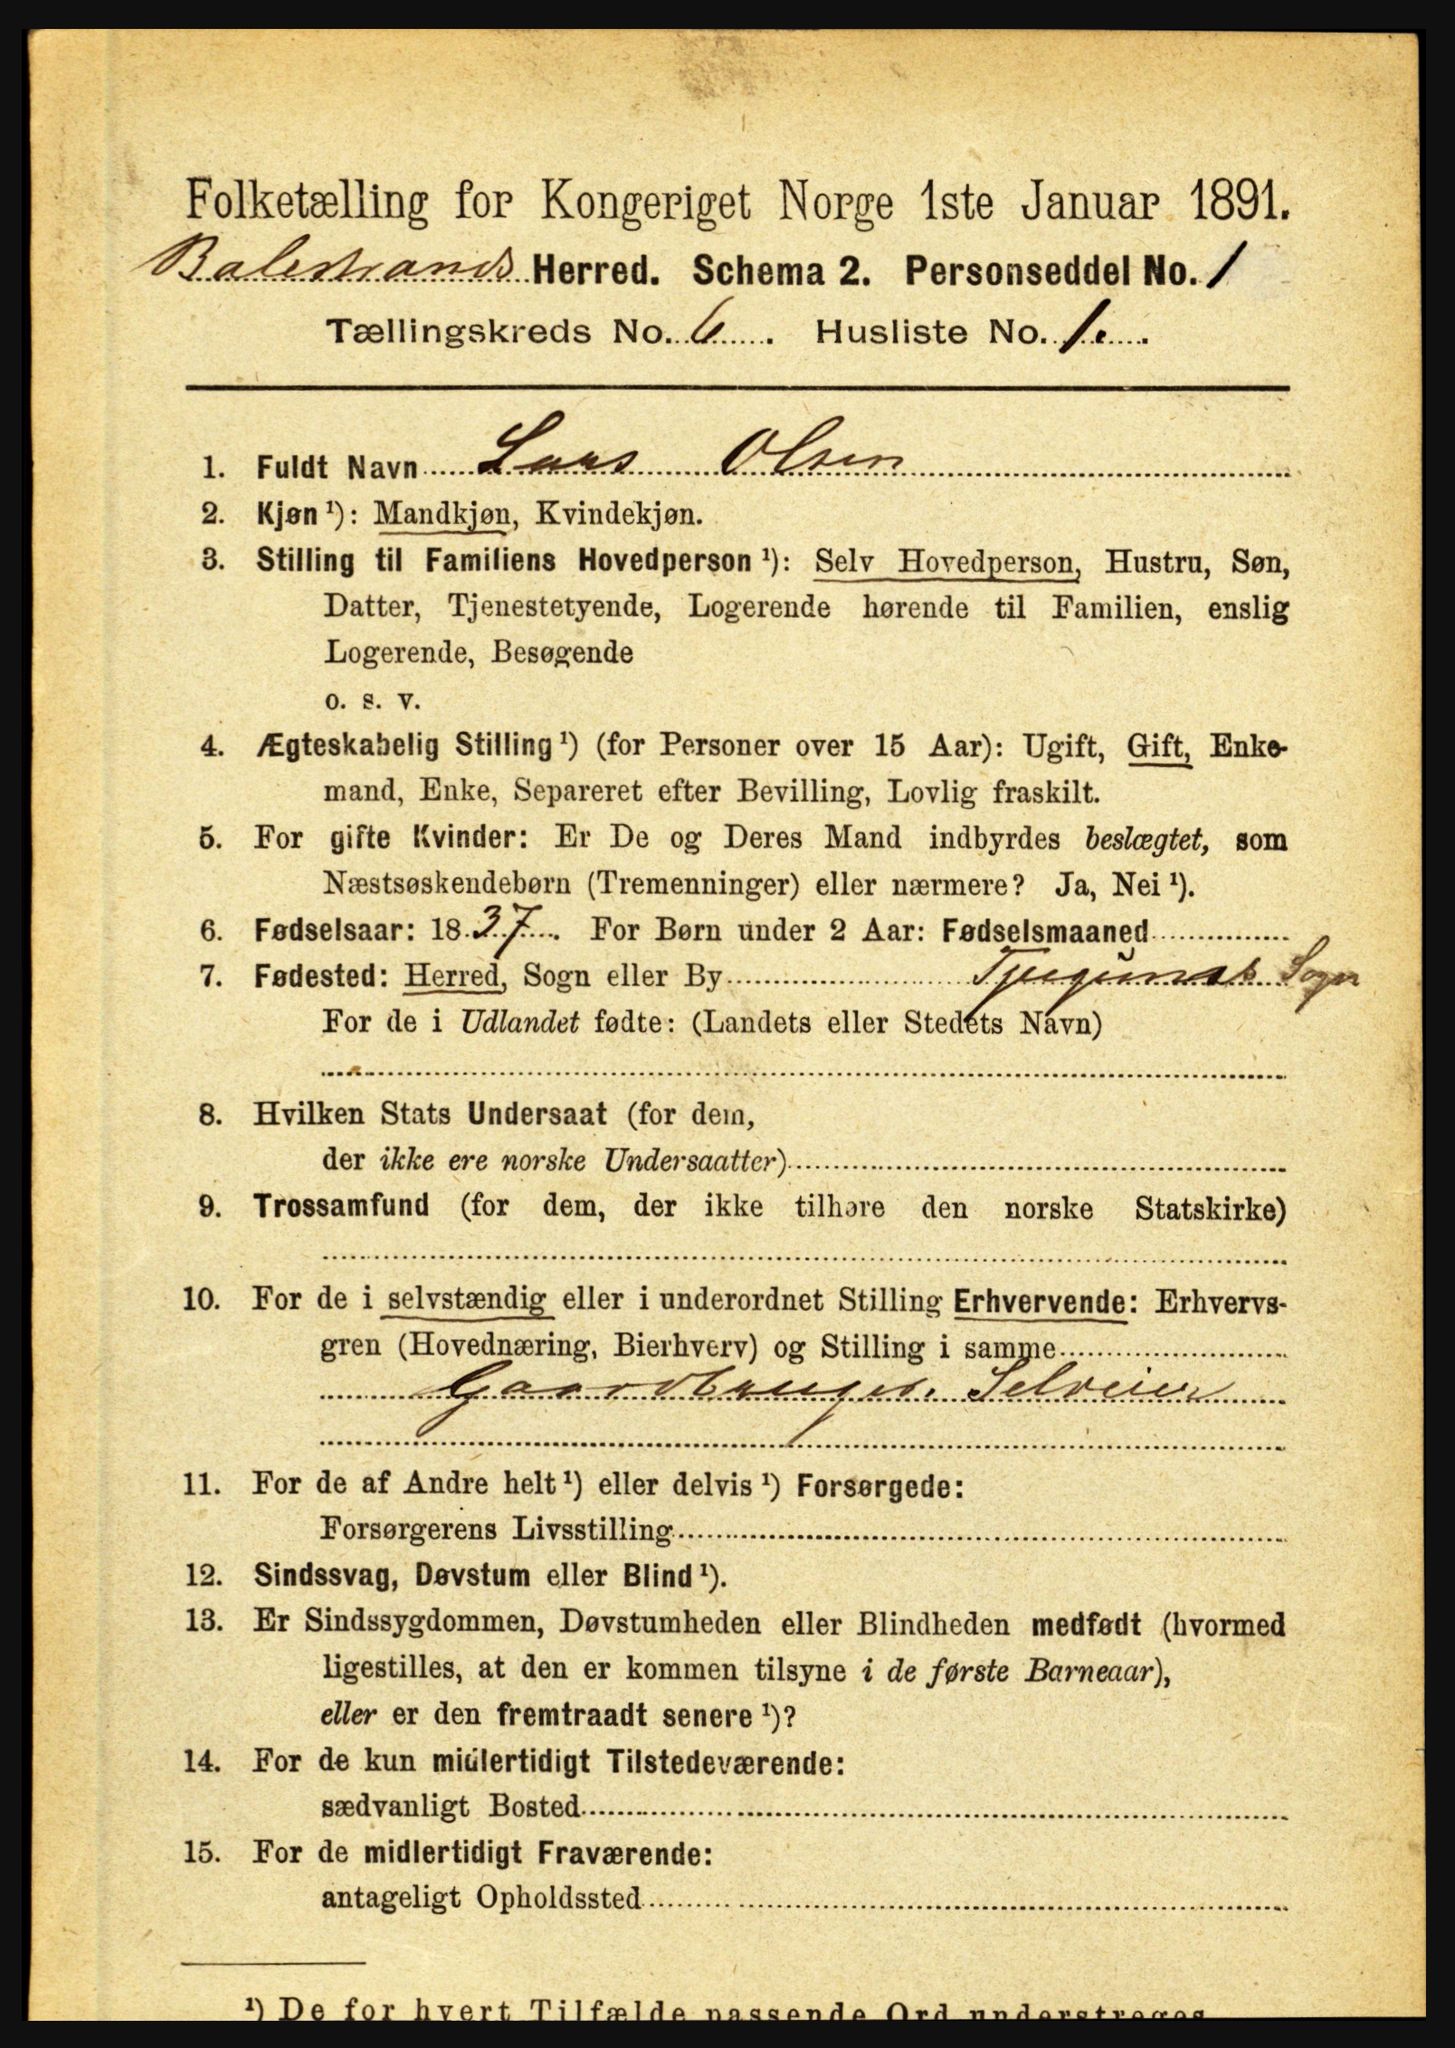 Folketælling for Kongeriget Norge 1ste Januar 1891.
Balestrands Herred. Schema 2. Personseddel No. 1
Tællingskreds No. 6. Husliste No. 1.
1. Fuldt Navn Lars Olsen
2. Kjøn ¹): Mandkjøn, Kvindekjøn.
3. Stilling til Familiens Hovedperson ¹): Selv Hovedperson, Hustru, Søn,
Datter, Tjenestetyende, Logerende hørende til Familien, enslig
Logerende, Besøgende
o. s. v.
4. Ægteskabelig Stilling ¹) (for Personer over 15 Aar): Ugift, Gift, Enke-
mand, Enke, Separeret efter Bevilling, Lovlig fraskilt.
5. For gifte Kvinder: Er De og Deres Mand indbyrdes beslægtet, som
Næstsøskendebørn (Tremenninger) eller nærmere? Ja, Nei ¹).
6. Fødselsaar: 1837. For Børn under 2 Aar: Fødselsmaaned
7. Fødested: Herred, Sogn eller By Tjugums Sogn
For de i Udlandet fødte: (Landets eller Stedets Navn)
8. Hvilken Stats Undersaat (for dem,
der ikke ere norske Undersaatter)
9. Trossamfund (for dem, der ikke tilhøre den norske Statskirke)
10. For de i selvstændig eller i underordnet Stilling Erhvervende: Erhvervs-
gren (Hovednæring, Bierhverv) og Stilling i samme
Gaardbruger. Selveier
11. For de af Andre helt ¹) eller delvis ¹) Forsørgede:
Forsørgerens Livsstilling
12. Sindssvag, Døvstum eller Blind ¹).
13. Er Sindssygdommen, Døvstumheden eller Blindheden medfødt (hvormed
ligestilles, at den er kommen tilsyne i de første Barneaar),
eller er den fremtraadt senere ¹)?
14. For de kun midlertidigt Tilstedeværende:
sædvanligt Bosted
15. For de midlertidigt Fraværende:
antageligt Opholdssted
¹) De for hvert Tilfælde passende Ord understreges